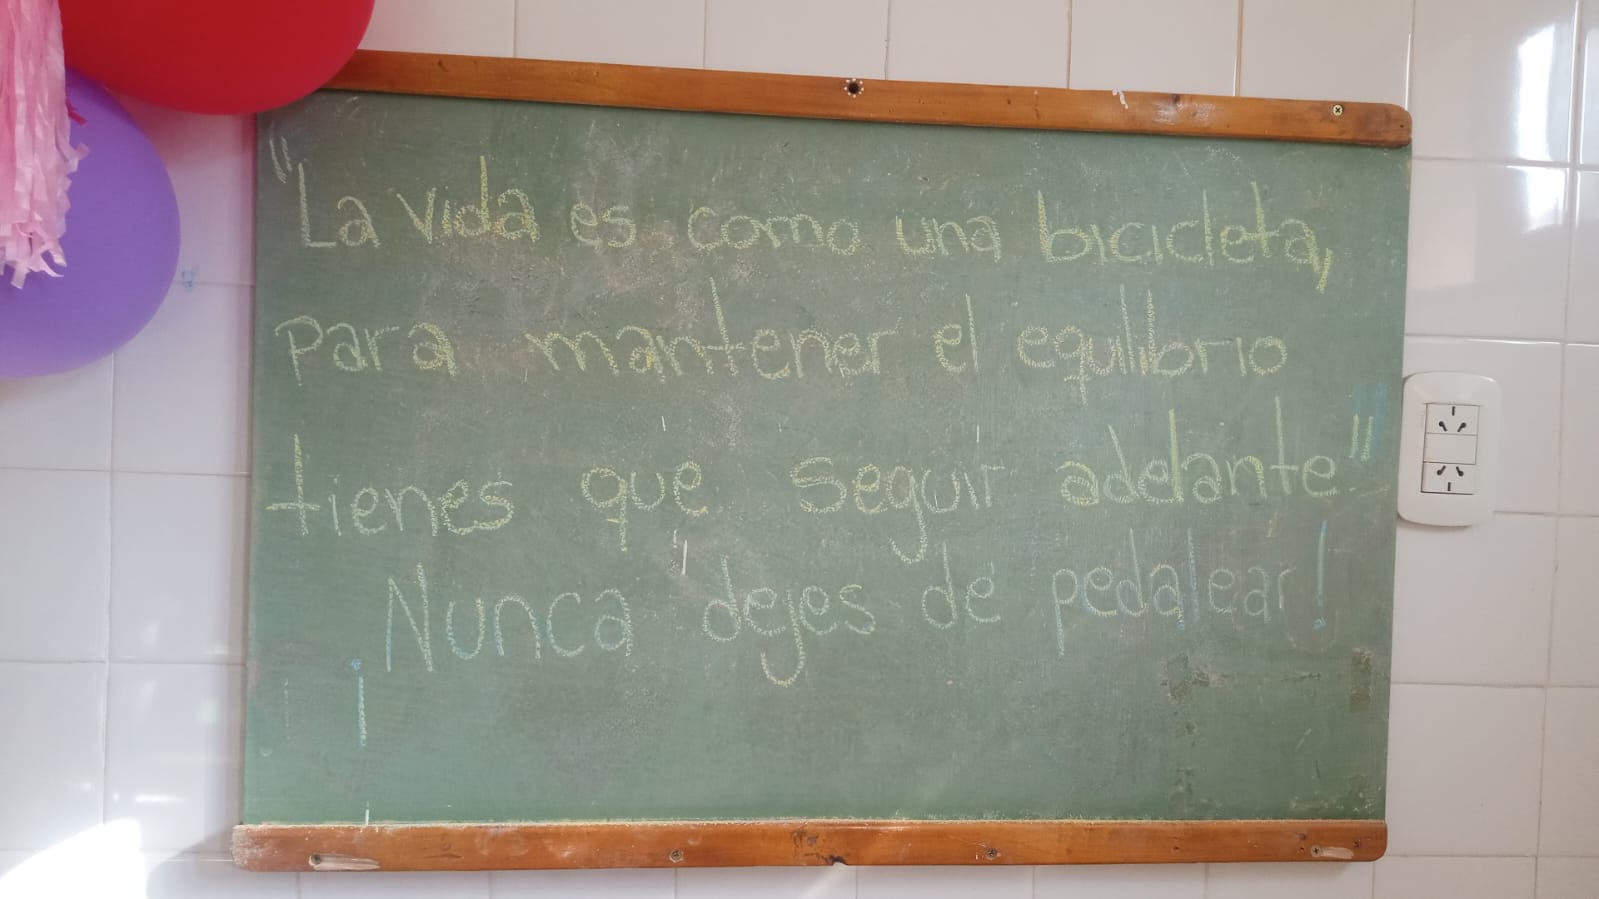 "La vida es como una bicicleta,
para mantener el equilibrio
tienes que seguir adelante"
¡Nunca dejes de pedalear!